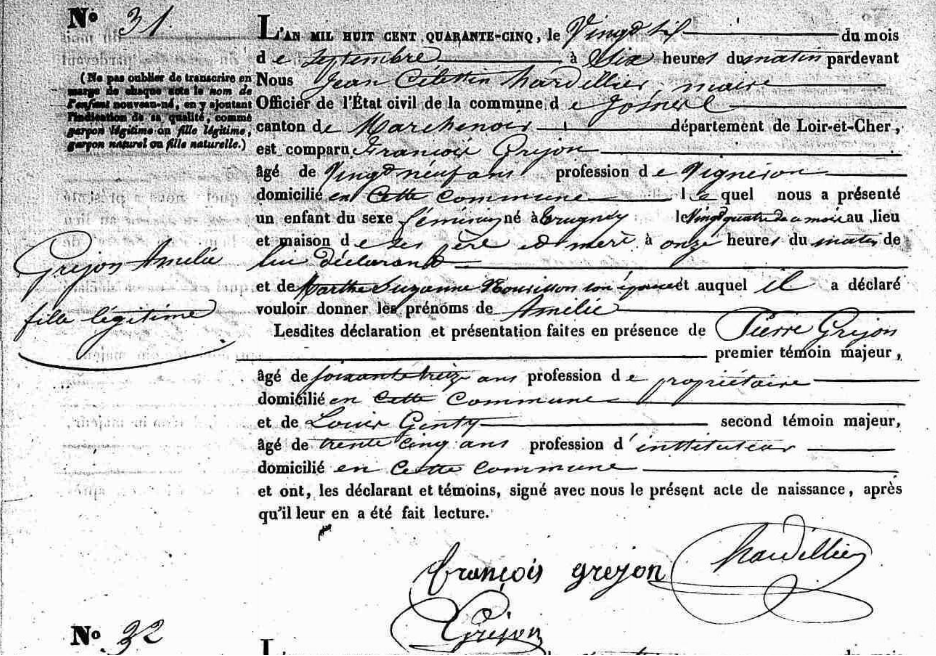 N° 31
L'AN MIL HUIT CENT QUARANTE-CINQ, le Vingt six du mois
de Septembre à dix heures du matin pardevant
(Ne pas oublier de transcrire en
marge de chaque acte le nom de
l'enfant nouveau-né, en y ajoutant
l'indication de sa qualité, comme
garçon légitime ou fille légitime,
garçon naturel ou fille naturelle.)
Nous Jean Célestin hardillier, maire
Officier de l'État civil de la commune de Josnes
canton de Marchenoir département de Loir-et-Cher,
est comparu François Grejon
âgé de Vingt neuf ans profession de Vigneron
domicilié en Cette Commune le quel nous a présenté
un enfant du sexe féminin né à le vingt quatre de ce mois au lieu
et maison de ses père et mère à onze heures du matin de
lui déclarant
Grejon Amélie
fille légitime
et de Marthe Suzanne son épouse et auquel il a déclaré
vouloir donner les prénoms de Amélie
Lesdites déclaration et présentation faites en présence de Pierre Grejon
premier témoin majeur,
âgé de soixante treize ans profession de propriétaire
domicilié en Cette Commune
et de Louis Genty second témoin majeur,
âgé de trente cinq ans profession d'instituteur
domicilié en Cette Commune
et ont, les déclarant et témoins, signé avec nous le présent acte de naissance, après
qu'il leur en a été fait lecture.
François grejon hardillier
Grejon
N° 32